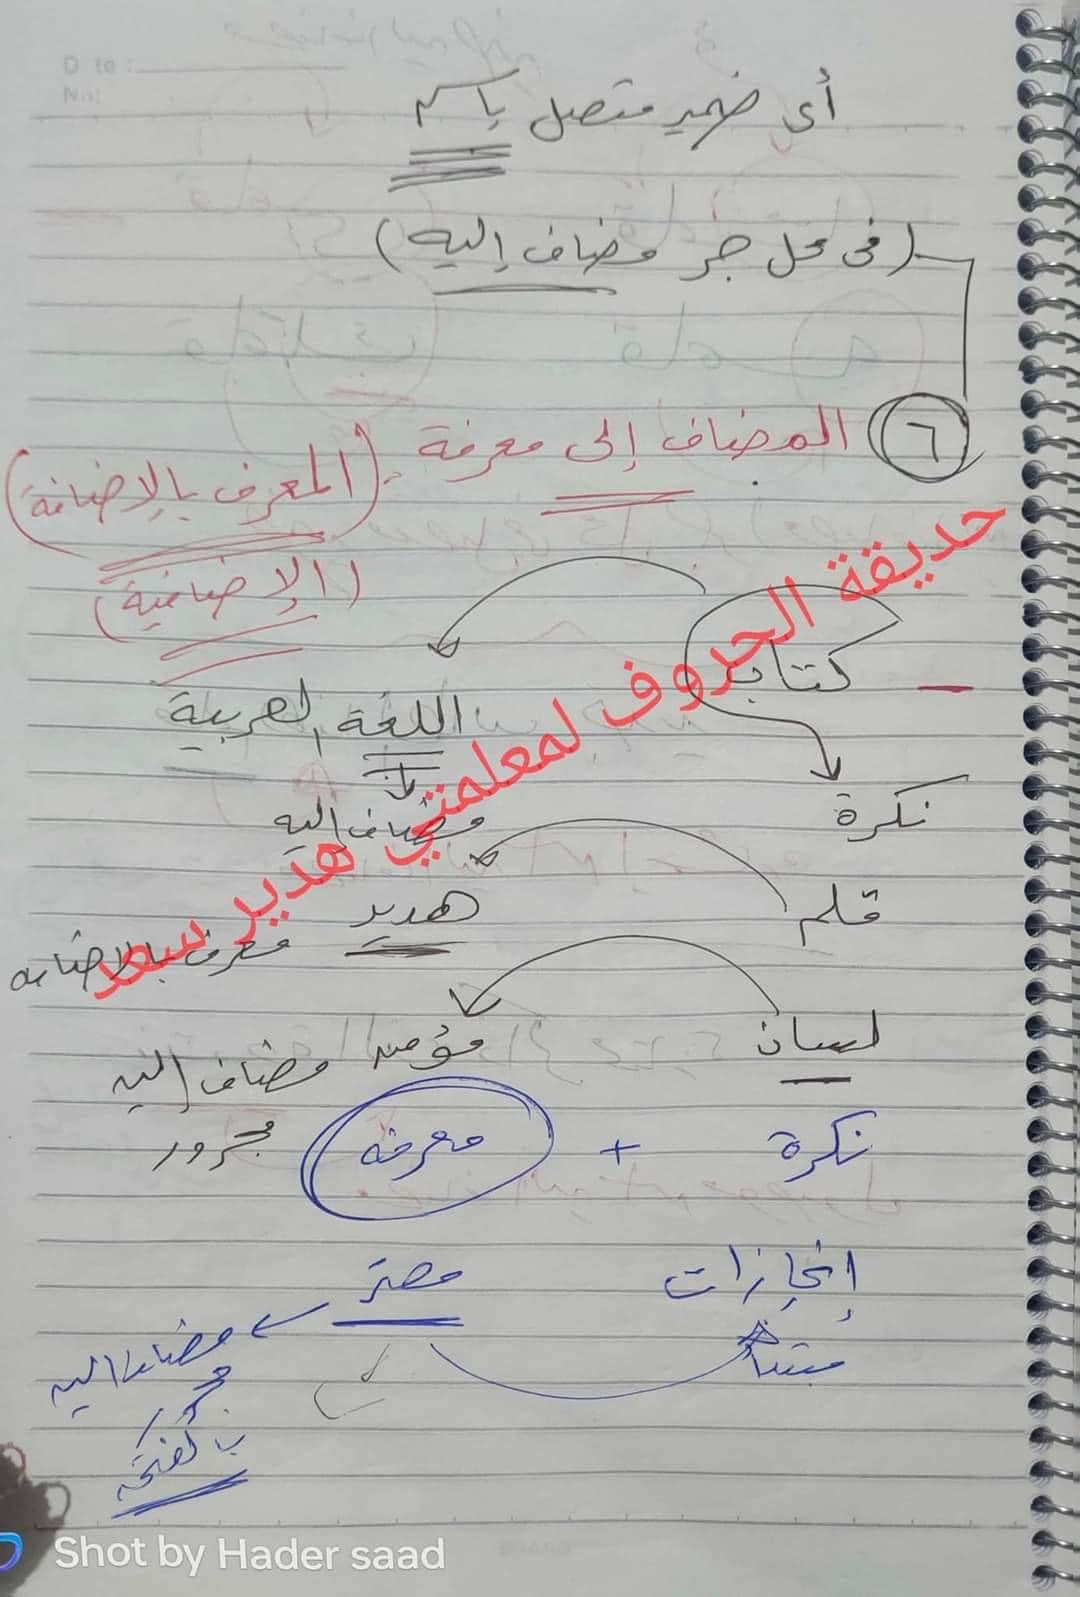 أى ضمير متصل باسم
(فى محل جر مضاف إليه)
٦ المضاف إلى معرفة. (المعرف بالإضافة)
(الإضافية)
حديقة الحروف لمعلمتي هدير سعد
- كتاب اللغة العربية
نكرة مضاف إليه
قلم هدير
معرف بالإضافة
لسان مؤمن مضاف إليه
نكرة + معرفة مجرور
إنجازات مصر
مبتدأ مضاف إليه
مجرور
بالفتحة
Date:
No:
Shot by Hader saad